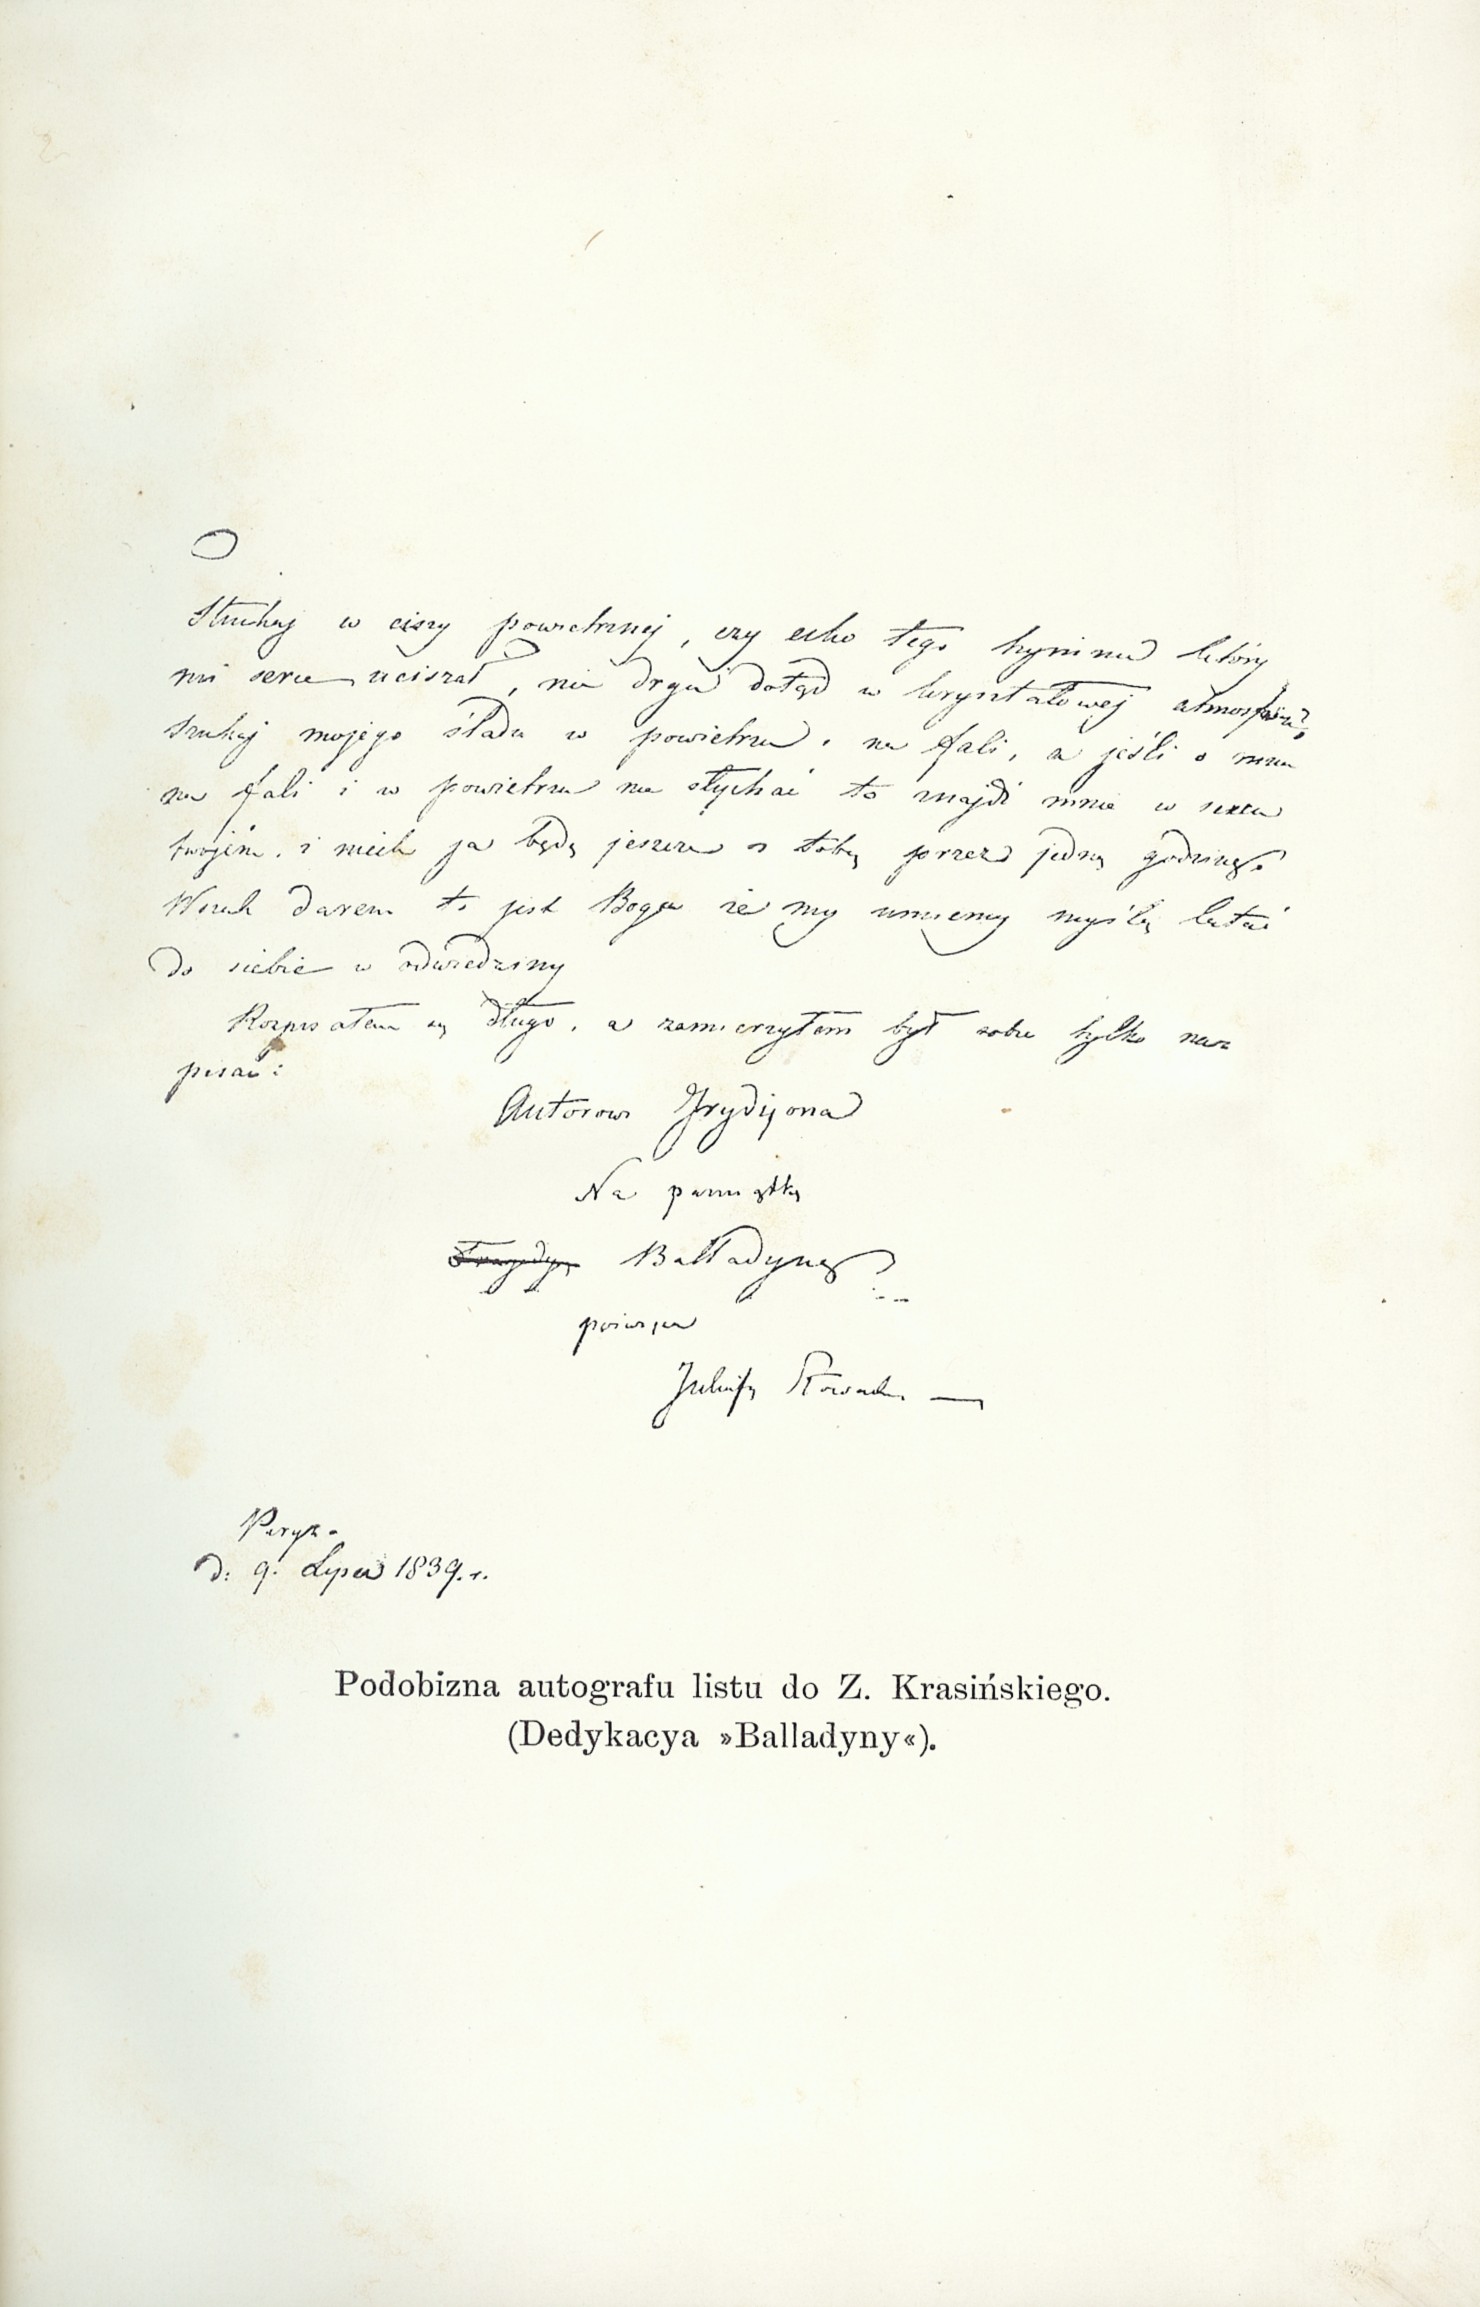 O
Słuchaj w ciszy powietrznej, czy echo tego hymnu który
mi serce uciszał, nie drga dotąd w kryształowej atmosferze?
szukaj mojego śladu w powietrzu, na fali, a jeśli o mnie
na fali i w powietrzu nie słychać to znajdź mnie w sercu
twojém, i niech ja będę jeszcze z tobą przez jedną godzinę.
Wszak darem to jest Boga że my umiemy myślą latać
do siebie w odwiedziny
Rozpisałem się długo, a zamierzyłem był sobie tylko na=
pisać:
Autorowi Irydijona
Na pamiątkę
Tragedyę Balladynę
poświęca
Juliusz Słowacki
Paryż.
d: 9. Lipca 1839. r.
Podobizna autografu listu do Z. Krasińskiego.
(Dedykacya »Balladyny«).